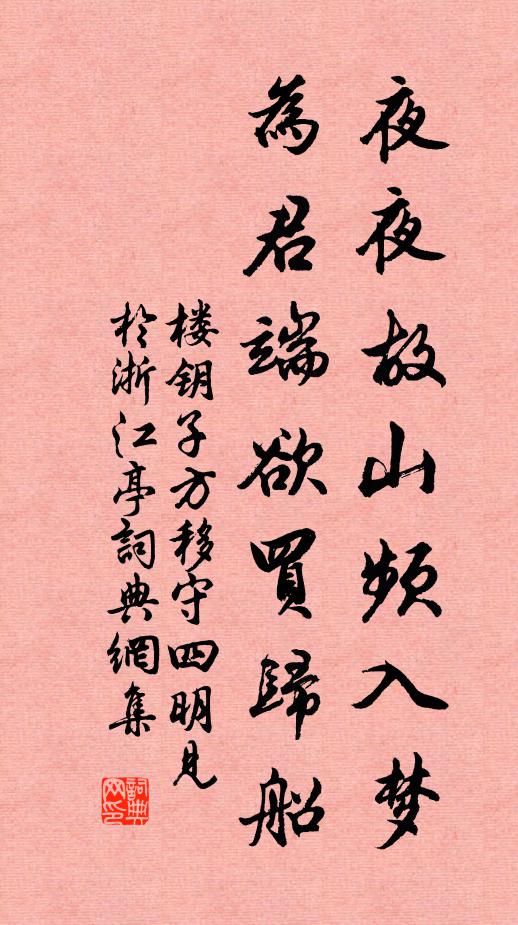 夜夜故山频入梦
為君端欲買歸船
楼钥子方移守四明見
於浙江亭詞典網集
詞典网印